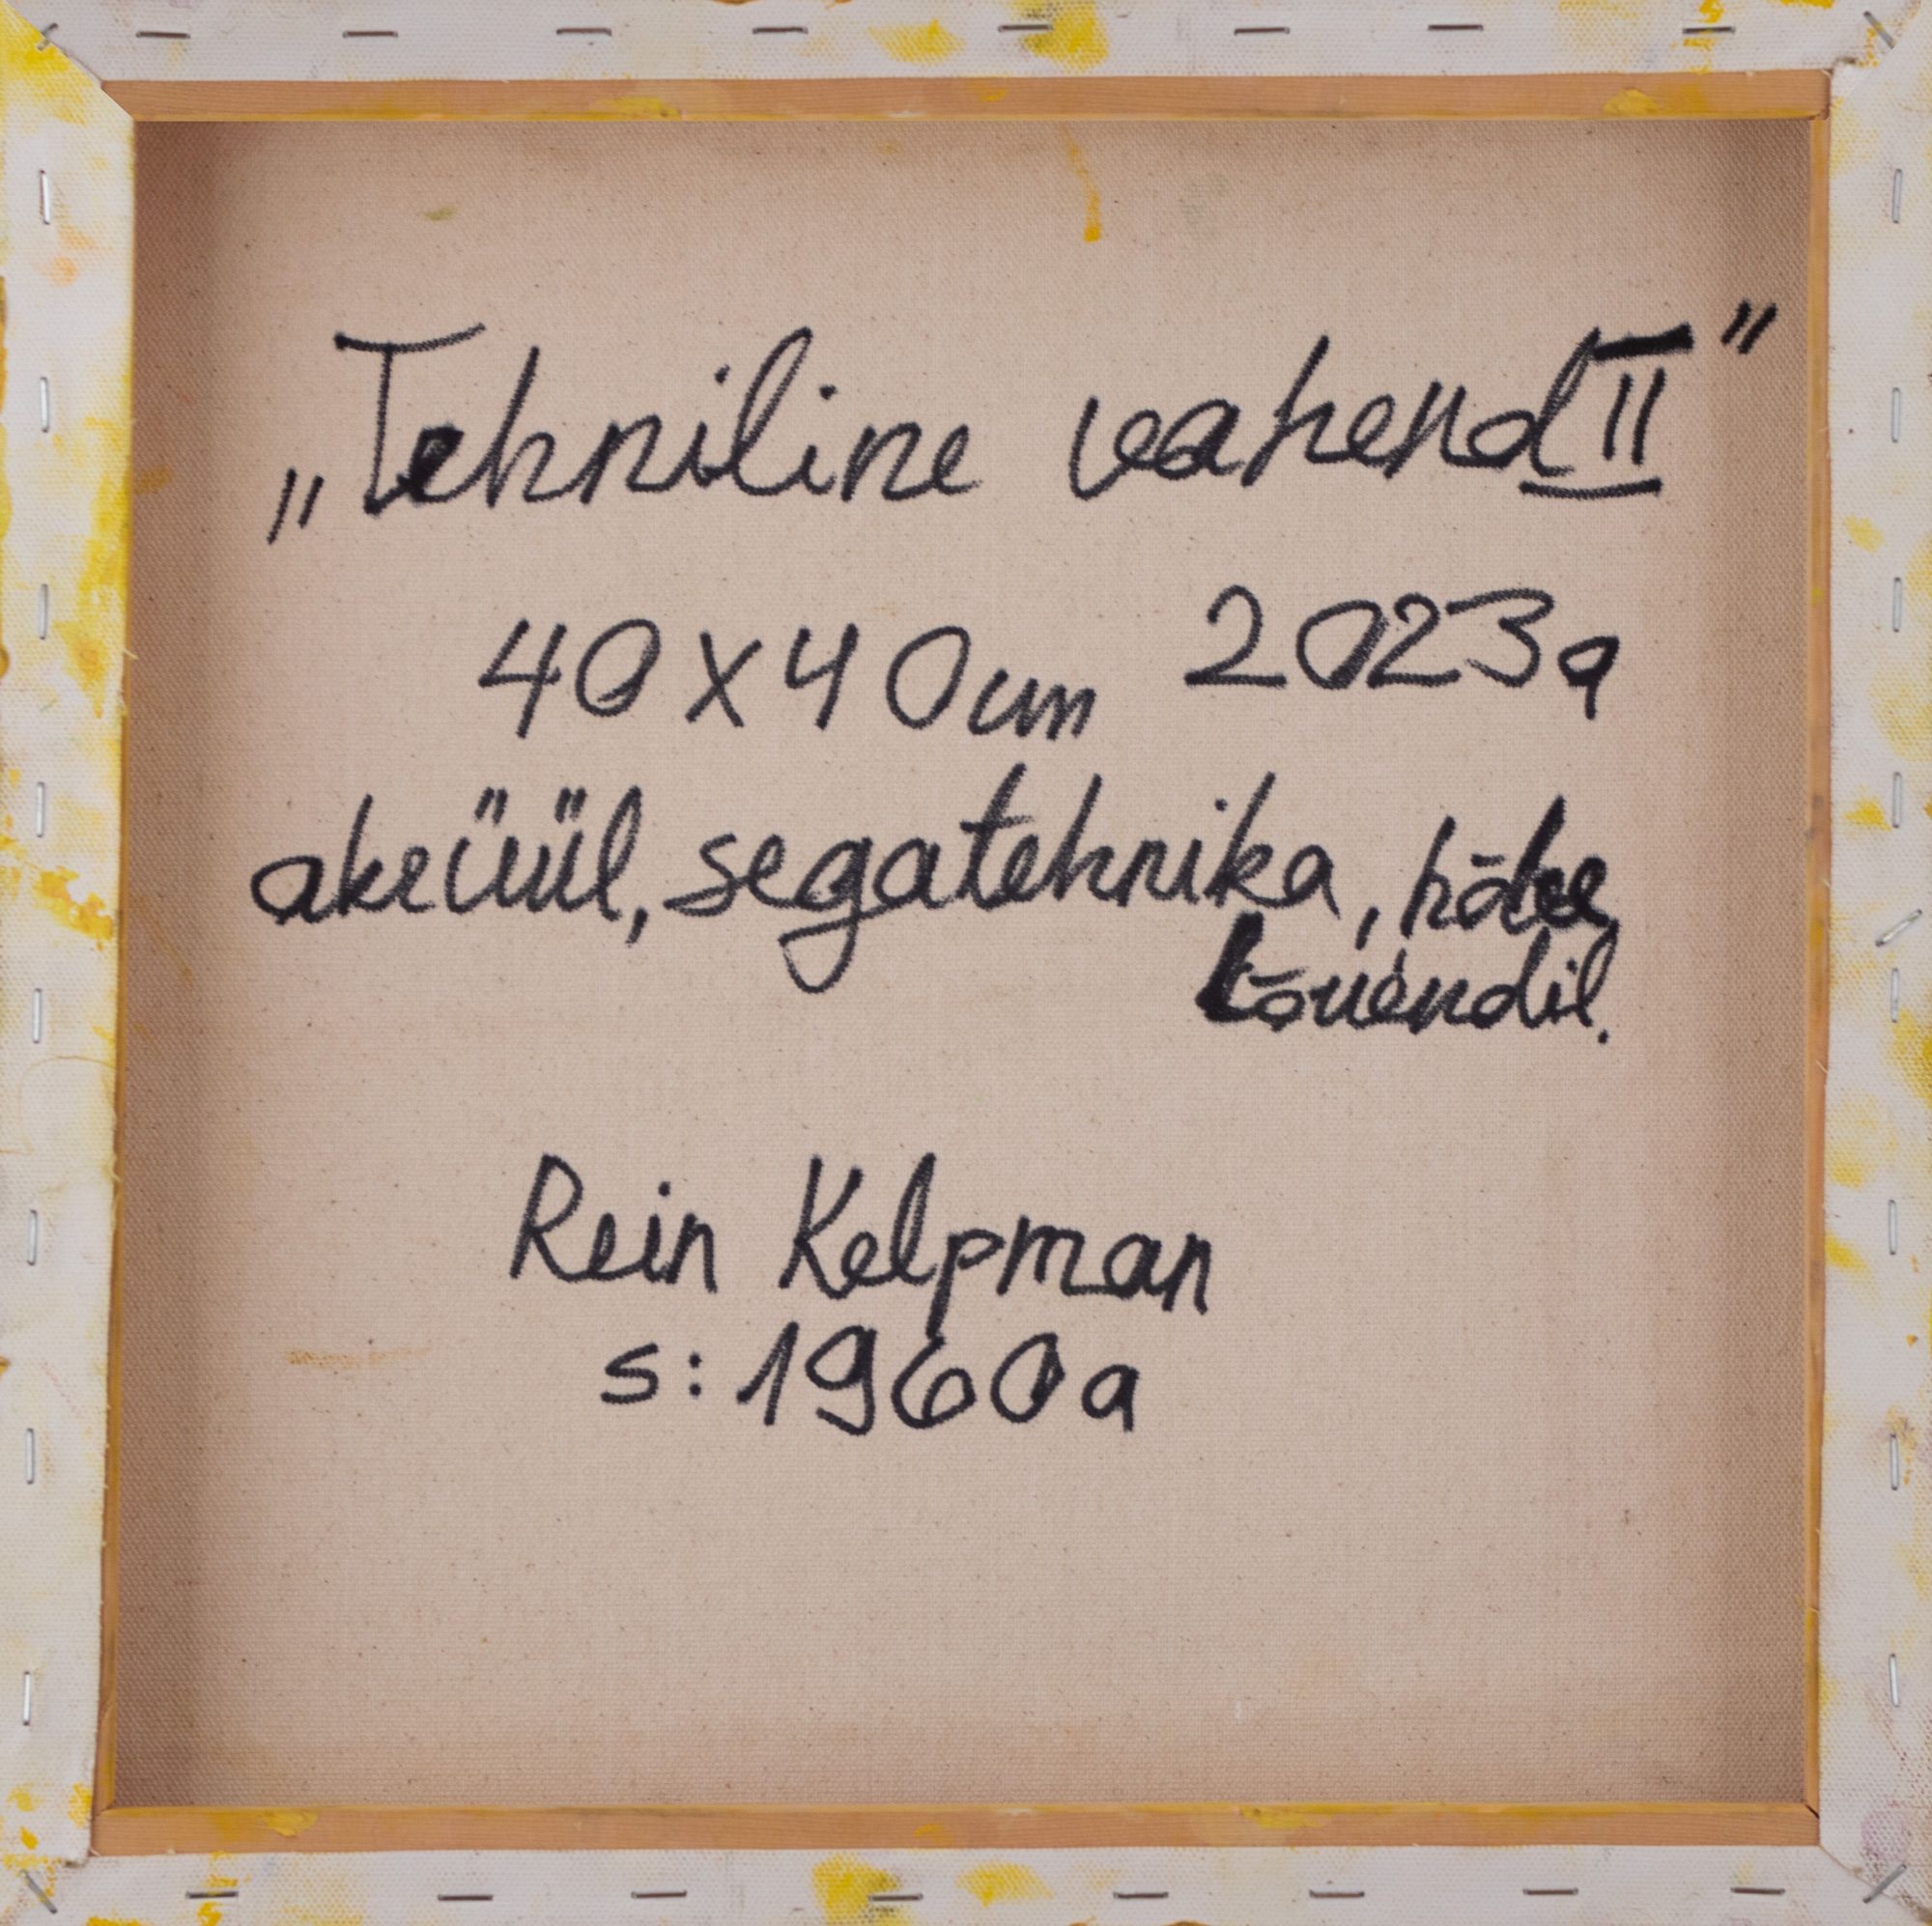 „Tehniline vahend II"
40x40cm 2023a
akrüül, segatehnika,
lõuendil.
Rein Kelpman
s: 1960a